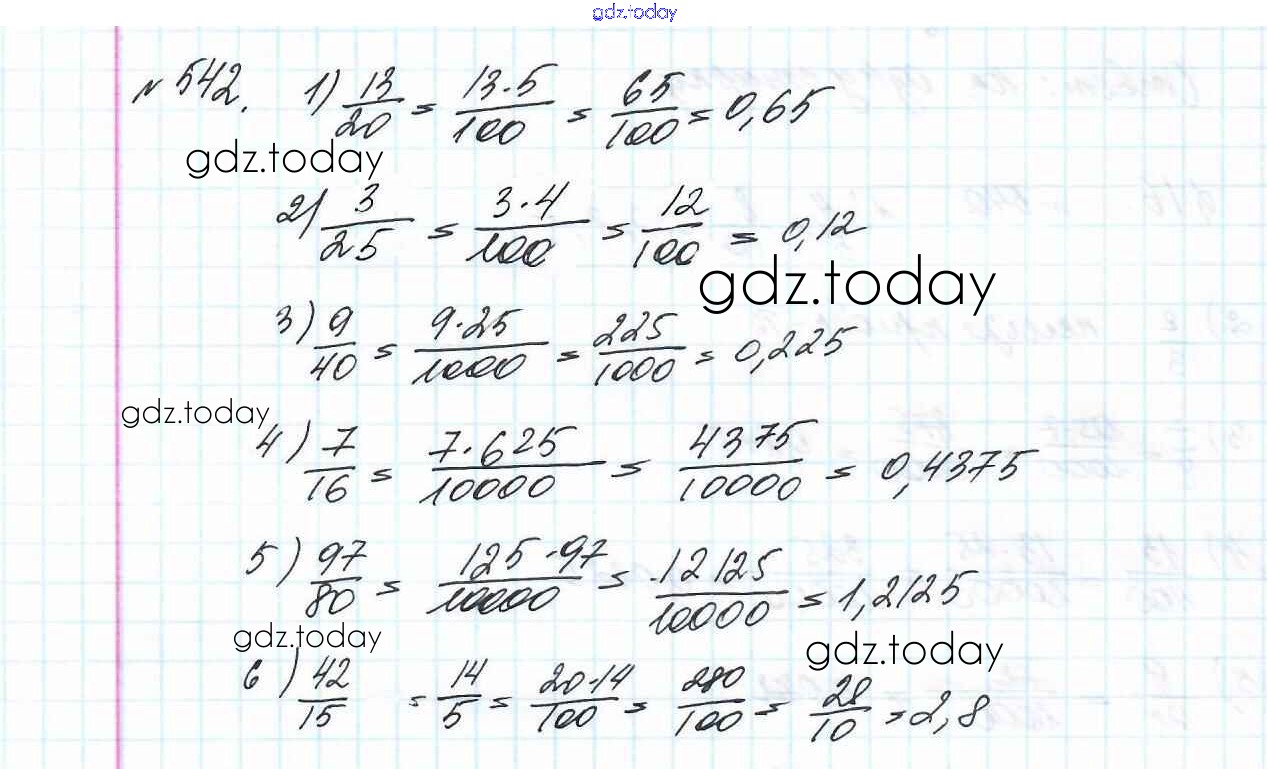 gdz.today
№ 542. 1) 13/20 = 13·5/100 = 65/100 = 0,65
gdz.today
2) 3/25 = 3·4/100 = 12/100 = 0,12
gdz.today
3) 9/40 = 9·25/1000 = 225/1000 = 0,225
gdz.today
4) 7/16 = 7·625/10000 = 4375/10000 = 0,4375
5) 97/80 = 125·97/10000 = 12125/10000 = 1,2125
gdz.today
gdz.today
6) 42/15 = 14/5 = 20·14/100 = 280/100 = 28/10 = 2,8